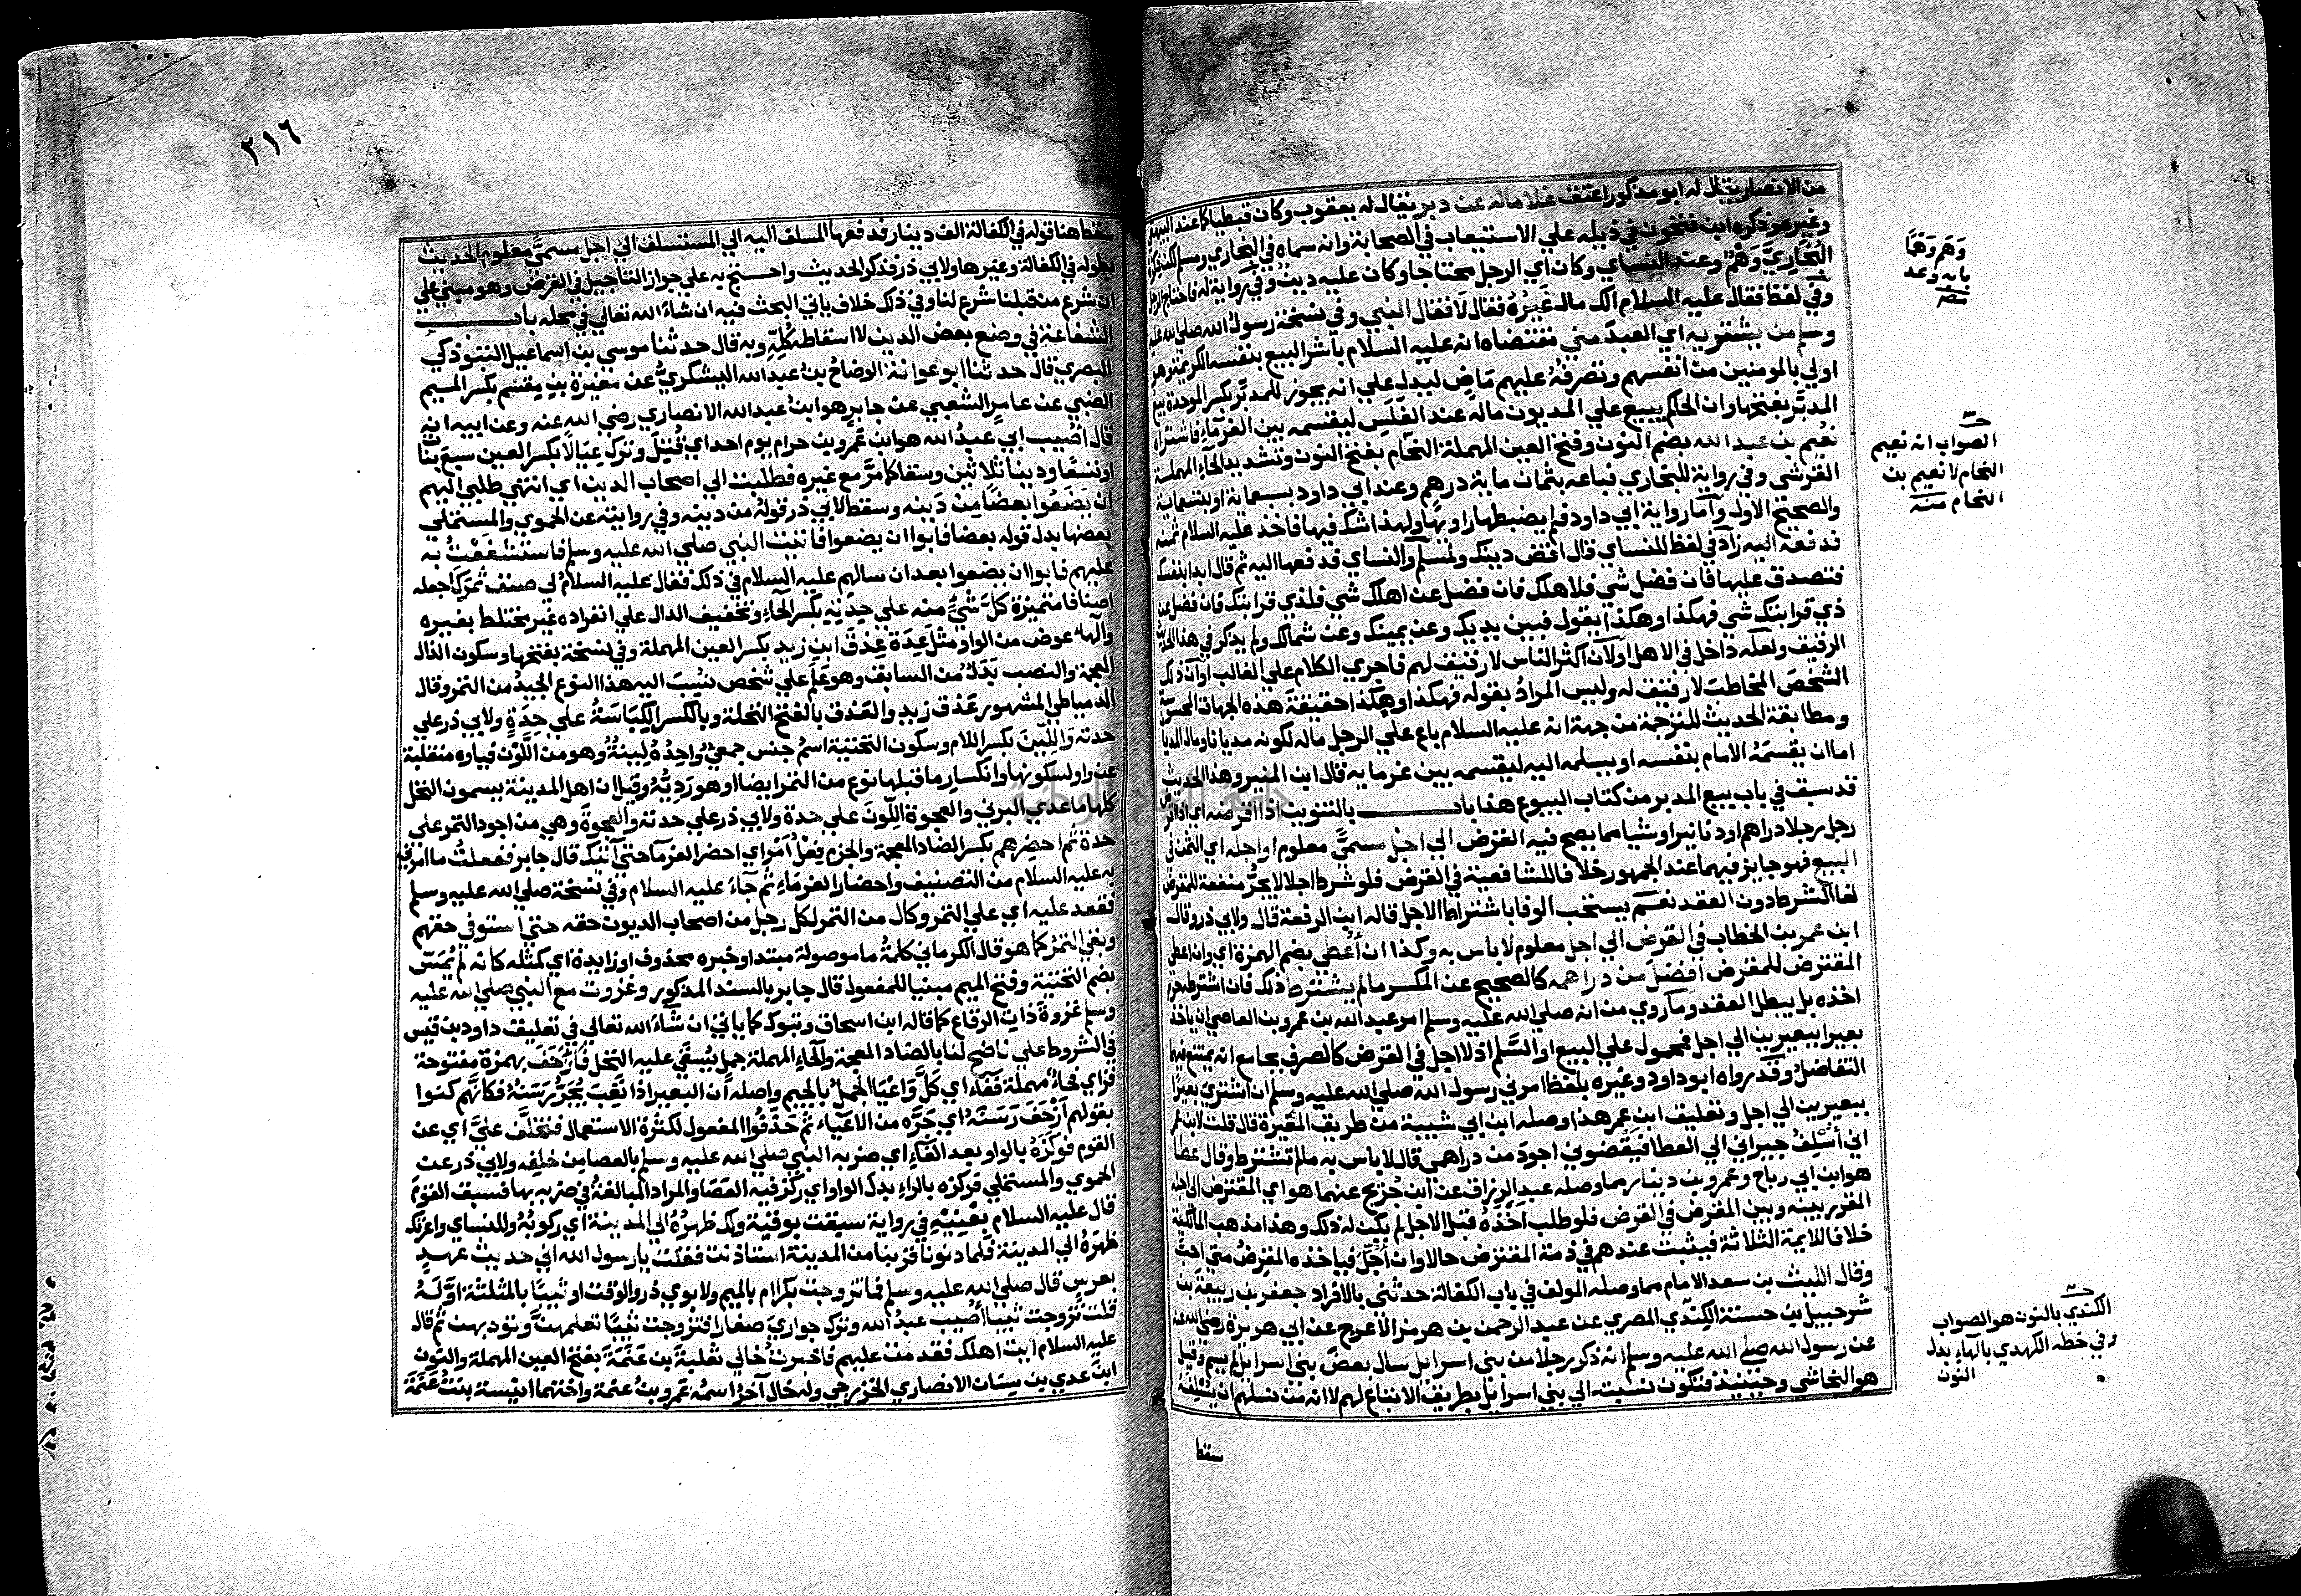 من الانصار يقال له ابو مذكور اعتق غلاما له عن دبر يقال له يعقوب وكان قبطيا كما عند البيهقي
وغيره وذكره ابن فتحون في ذيله علي الاستيعاب في الصحابة وانه سماه في البخاري ومسلم لكن ذكره
البخاري وهم وعند النساي وكان اي الرجل محتاجا وكان عليه دين وفي رواية له فاحتاج الرجل
وفي لفظ فقال عليه السلام الك مال غيره فقال لا فقال النبي وفي نسخة رسول الله صلي الله عليه
وسلم من يشتريه اي العبد مني مقتضاه انه عليه السلام باشر البيع بنفسه الكريمة وهو
اولي بالمومنين من انفسهم وتصرفه عليهم ماض ليدل علي انه يجوز للمدبر بكسر الموحدة بيع
المدبر بفتحها وان الحاكم يبيع علي المديون ماله عند الفلس ليقسمه بين الغرما فاشتراه
نعيم بن عبد الله بضم النون وفتح العين المهملة النحام بفتح النون وتشديد الحاء المهملة
القرشي وفي رواية للبخاري فباعه بثمان ماية درهم وعند ابي داود بسبعماية او بتسعماية
والصحيح الاول واما رواية ابي داود فلم يضبطها راويها ولهذا شك فيها فاخذ عليه السلام ثمنه
فدفعه اليه زاد في لفظ للنساي قال اقض دينك ولمسلم والنساي فدفعها اليه ثم قال ابدا بنفسك
فتصدق عليها فان فضل شي فلاهلك فان فضل عن اهلك شي فلذي قرابتك فان فضل عن
ذي قرابتك شي فهكذا وهكذا يقول فبين يديك وعن يمينك وعن شمالك ولم يذكر في هذا الحديث
الرقيق ولعله داخل في الاهل او لان اكثر الناس لا رقيق لهم فاجري الكلام علي الغالب او ان ذلك
الشخص المخاطب لا رقيق له وليس المراد بقوله فهكذا وهكذا حقيقة هذه الجهات المحسوسة
ومطابقة الحديث للترجمة من جهة انه عليه السلام باع علي الرجل ماله لكونه مديانا ومال المديان
اما ان يقسمه الامام بنفسه او يسلمه اليه ليقسمه بين غرمايه قال ابن المنير وهذا الحديث
قد سبق في باب بيع المدبر من كتاب البيوع هذا باب بالتنوين اذا اقرضه اي اذا اقرض
رجل رجلا دراهم او دنانير او شيا مما يصح فيه القرض الي اجل مسمي معلوم او اجله اي الثمن في
البيع فهو جايز فيهما عند الجمهور خلافا للشافعية في القرض فلو شرط اجلا لا يجر منفعة للمقرض
لغا الشرط دون العقد نعم يستحب الوفا باشتراط الاجل قاله ابن الرفعة قال ولابي ذر وقال
ابن عمر بن الخطاب في القرض الي اجل معلوم لا باس به وكذا ان اعطي بضم الهمزة اي وان اعطي
المقترض للمقرض افضل من دراهمه كالصحيح عن المكسر ما لم يشترط ذلك فان اشترطه حرم
اخذه بل يبطل العقد وما روي من انه صلي الله عليه وسلم امر عبد الله بن عمرو بن العاصي ان ياخذ
بعيرا ببعيرين الي اجل فمحمول علي البيع او السلم اذ لا اجل في القرض كالصرف بجامع انه يمتنع فيهما
التفاضل وقد رواه ابو داود وغيره بلفظ امرني رسول الله صلي الله عليه وسلم ان اشتري بعيرا
ببعيرين الي اجل وتعليق ابن عمر هذا وصله ابن ابي شيبة من طريق المغيرة قال قلت لابن عمر
اني اسلف جيراني الي العطا فيقضوني اجود من دراهمي قال لا باس به ما لم تشترط وقال عطا
هو ابن ابي رباح وعمرو بن دينار مما وصله عبد الرزاق عن ابن جريج عنهما هو اي المقترض الي اجله
المقرر بينه وبين المقرض في القرض فلو طلب اخذه قبل الاجل لم يكن له ذلك وهذا مذهب المالكية
خلافا للايمة الثلاثة فيثبت عندهم في ذمة المقترض حالا وان اجل فياخذه المقرض متي احب
وقال الليث بن سعد الامام مما وصله المولف في باب الكفالة حدثني بالافراد جعفر بن ربيعة بن
شرحبيل بن حسنة الكندي المصري عن عبد الرحمن بن هرمز الاعرج عن ابي هريرة رضي الله عنه
عن رسول الله صلي الله عليه وسلم انه ذكر رجلا من بني اسرايل سال بعض بني اسرايل لم يسم وقيل
هو النجاشي وحينيذ فتكون نسبته الي بني اسرايل بطريق الاتباع لهم لا انه من نسلهم ان يسلفه
سقط
وهم وهما
بابه وعد
الصواب انه نعيم
النحام لا نعيم بن
النحام منه
الكندي بالنون هو الصواب
وفي خطه الكهدي بالهاء بدل
النون
٣١٦
سقط هنا قوله في الكفالة الف دينار فدفعها المسلف اليه الي المستسلف الي اجل مسمي معلوم الحديث
بطوله في الكفالة وغيرها ولابي ذر فذكر الحديث واحتج به علي جواز التاجيل في القرض وهو مبني علي
ان شرع من قبلنا شرع لنا وفي ذلك خلاف ياتي البحث فيه ان شاء الله تعالي في محله باب
الشفاعة في وضع بعض الدين لا اسقاطه كله وبه قال حدثنا موسي بن اسماعيل التبوذكي
البصري قال حدثنا ابو عوانة الوضاح بن عبد الله اليشكري عن مغيرة بن مقسم بكسر الميم
الضبي عن عامر الشعبي عن جابر هو ابن عبد الله الانصاري رضي الله عنه وعن ابيه انه
قال اصيب ابي عبد الله هو ابن عمرو بن حرام يوم احد اي قتل وترك عيالا بكسر العين سبع بنات
او تسعا ودينا ثلاثين وسقا كما مر مع غيره فطلبت الي اصحاب الدين اي انتهي طلبي اليهم
ان يضعوا بعضا من دينه وسقط لابي ذر قوله من دينه وفي روايته عن الحموي والمستملي
بعضها بدل قوله بعضا فابوا ان يضعوا فاتيت النبي صلي الله عليه وسلم فاستشفعت به
عليهم فابوا ان يضعوا بعد ان سالهم عليه السلام في ذلك فقال عليه السلام لي صنف تمرك اجعله
اصنافا متميزة كل شي منه علي حدته بكسر الحاء وتخفيف الدال علي انفراده غير مختلط بغيره
والهاء عوض من الواو مثل عدة عذق ابن زيد بكسر العين المهملة وفي نسخة بفتحها وسكون الذال
المعجمة والنصب بدل من السابق وهو علم علي شخص نسب اليه هذا النوع الجيد من التمر وقال
الدمياطي المشهور عذق زيد والعذق بالفتح النخلة وبالكسر الكباسة علي حدة ولابي ذر علي
حدته واللين بكسر اللام وسكون التحتية اسم جنس جمعي واحده لينة وهو من اللون فياوه منقلبة
عن واو لسكونها وانكسار ما قبلها نوع من التمر ايضا او هو رديه وقيل ان اهل المدينة يسمون النخل
كلها ما عدي البرني والعجوة اللون علي حدة ولابي ذر علي حدته والعجوة وهي من اجود التمر علي
حدة ثم احضرهم بكسر الضاد المعجمة والجزم فعل امر اي احضر الغرما حتي اتيك قال جابر ففعلت ما امرني
به عليه السلام من التصنيف واحضار الغرماء ثم جاء عليه السلام وفي نسخة صلي الله عليه وسلم
فقعد عليه اي علي التمر وكال من التمر لكل رجل من اصحاب الديون حقه حتي استوفي حقهم
وبقي التمر كما هو قال الكرماني كلمة ما موصولة مبتدا وخبره محذوف او زايدة اي كمثله كانه لم يمس
بضم التحتية وفتح الميم مبنيا للمفعول قال جابر بالسند المذكور وغزوت مع النبي صلي الله عليه
وسلم غزوة ذات الرقاع كما قاله ابن اسحاق وتبوك كما ياتي ان شاء الله تعالي في تعليق داود بن قيس
في الشروط علي ناضح لنا بالضاد المعجمة والحاء المهملة جمل يستقي عليه النخل فازحف بهمزة مفتوحة
فزاي فحاء مهملة ففاء اي كل واعيا الجمل بالجيم واصله ان البعير اذا تعب يجر رسنه فكانهم كنوا
بقولهم ازحف رسنه اي جره من الاعياء ثم حذفوا المفعول لكثرة الاستعمال فتخلف علي اي عن
القوم فوكزه بالواو بعد الفاء اي ضربه النبي صلي الله عليه وسلم بالعصا من خلفه ولابي ذر عن
الحموي والمستملي فركزه بالراء بدل الواو اي ركز فيه العصا والمراد المبالغة في ضربه بها فسبق القوم
قال عليه السلام بعنيه في رواية سبقت بوقية ولك ظهره الي المدينة اي ركوبه وللنساي واعرتك
ظهره الي المدينة فلما دنونا قربنا من المدينة استاذنت فقلت يا رسول الله اني حديث عهد
بعرس قال صلي الله عليه وسلم فما تزوجت بكرا ام بالميم ولابوي ذر والوقت او ثيبا بالمثلثة اوله
قلت تزوجت ثيبا اصيب عبد الله وترك جواري صغارا فتزوجت ثيبا تعلمهن وتودبهن ثم قال
عليه السلام ايت اهلك فقدمت عليهم فاخبرت خالي ثعلبة بن عنمة بفتح العين المهملة والنون
ابن عدي بن سنان الانصاري الخزرجي وله خال آخر اسمه عمرو بن عنمة واختهما انيسة بنت عنمة